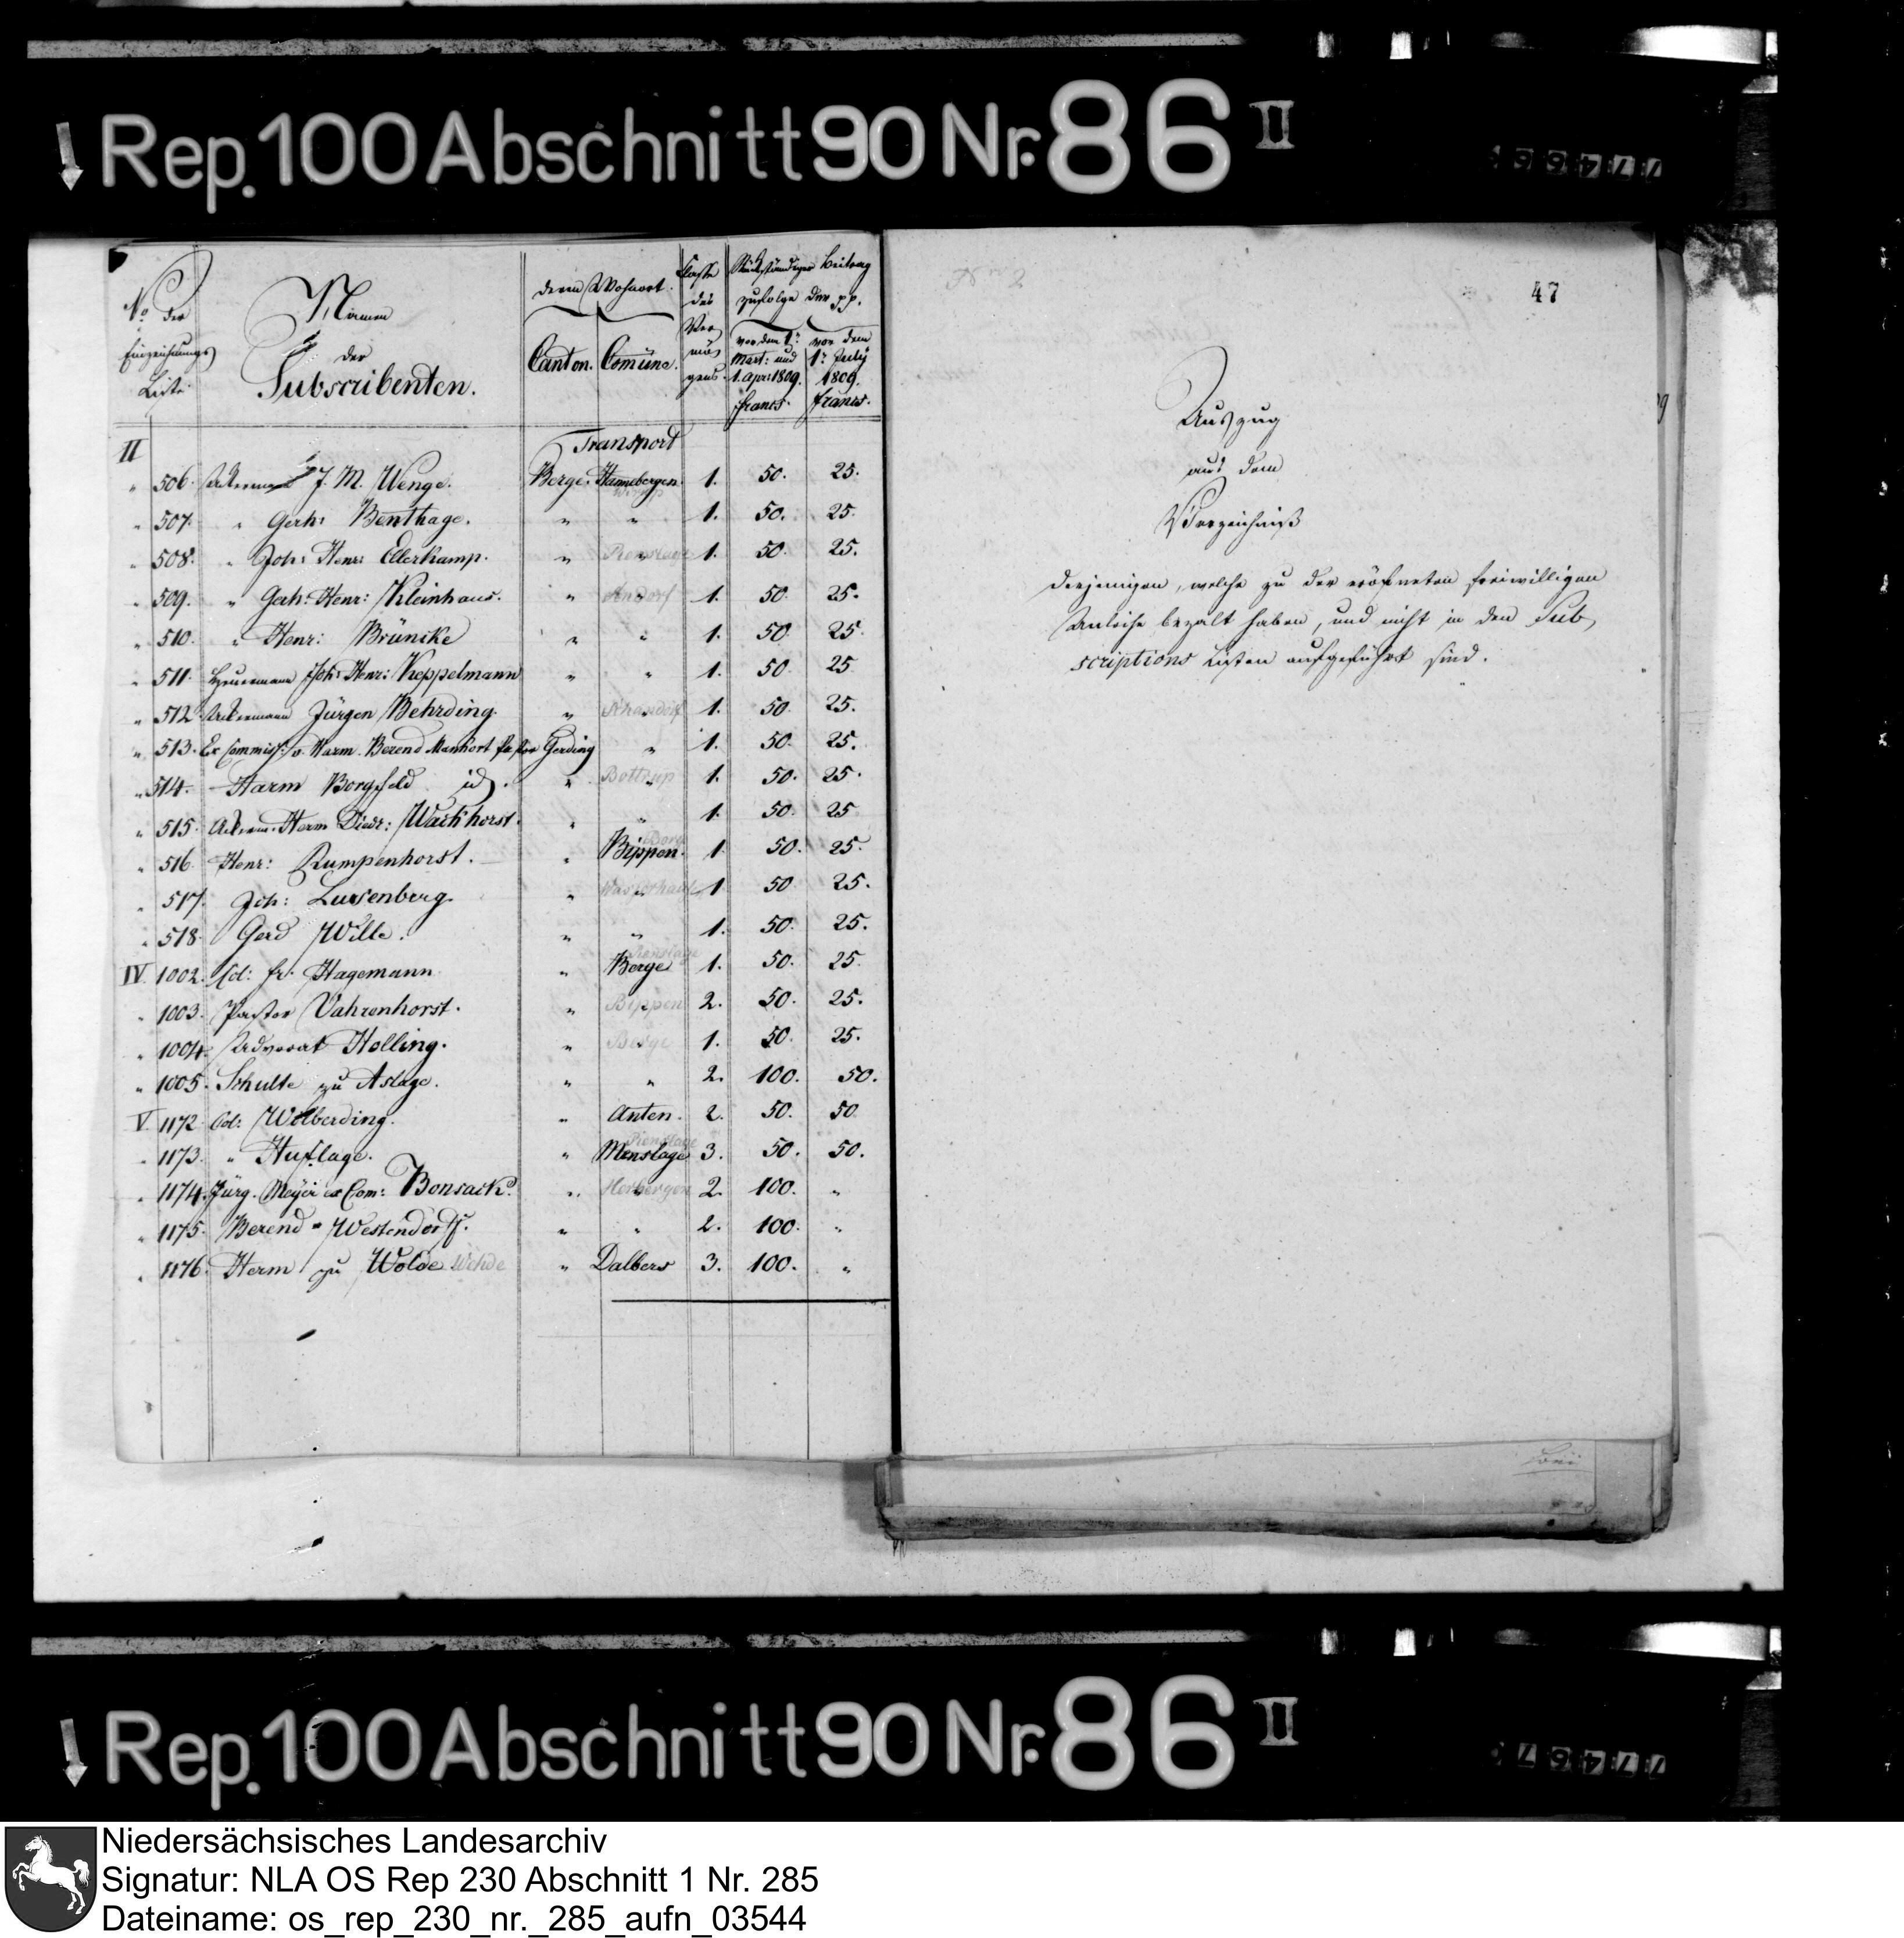 Rep. 100 Abschnitt 90 Nr. 86 II
77466
No der Einzeichnungs Liste
Namen der Subscribenten.
deren Wohnort.
Canton. Comüne.
Classe des Vermögens.
Rückständiger Beitrag zufolge der pp.
vor dem 1. Mart: und 1. Apr: 1809. francs.
vor dem 1. July 1809. francs.
Transport
II
" 506. Ackermann J. M. Wenge. Berge. Hannebergen. 1. 50. 25.
" 507. " Gerh: Benthage. " " 1. 50. 25.
" 508. " Joh: Henr: Ellerkamp. " " 1. 50. 25.
" 509. " Gerh: Henr: Kleinhaus. " " 1. 50. 25.
" 510. " Henr: Brüncke " " 1. 50. 25.
" 511. Heuermann Joh: Henr: Keppelmann " " 1. 50. 25
" 512. Ackermann Jürgen Behrding. " " 1. 50. 25.
" 513. Ex Commiss: v. Harm. Berend Manhort Pastor Gerding " 1. 50. 25.
" 514. Harm Borgfeld id. " Bottrup 1. 50. 25.
" 515. Ackerm. Herm Diedr: Wackhorst. " " 1. 50. 25
" 516. Henr: Rumpenhorst. " Bippen. 1. 50. 25.
" 517. Joh: Lursenberg. " " 1. 50 25.
" 518. Gerd Wille. " " 1. 50. 25.
IV. 1002. Col: fr: Hagemann " Berge 1. 50. 25.
" 1003. Pastor Vahrenhorst. " Bippen 2. 50. 25.
" 1004. Advocat Holling. " Berge 1. 50. 25.
" 1005. Schulte zu Aslage. " " 2. 100. 50.
V. 1172. Col: Wolberding. " Anten. 2. 50. 50
" 1173. " Huslage. " Menslage 3. 50. 50.
" 1174. Jürg. Meyer ex Com: Bonsack. " Herbergen 2. 100. "
" 1175. Berend " Westendorff. " " 2. 100. "
" 1176. Herm zu Wolde Wehde " Dalbers 3. 100. "
47
Auszug
aus dem
Verzeichniß
derjenigen, welche zu der eröfneten freiwilligen
Anleihe bezalt haben, und nicht in den Sub,
scriptions Listen aufgeführt sind.
Rep. 100 Abschnitt 90 Nr. 86 II
77467
Niedersächsisches Landesarchiv
Signatur: NLA OS Rep 230 Abschnitt 1 Nr. 285
Dateiname: os_rep_230_nr._285_aufn_03544